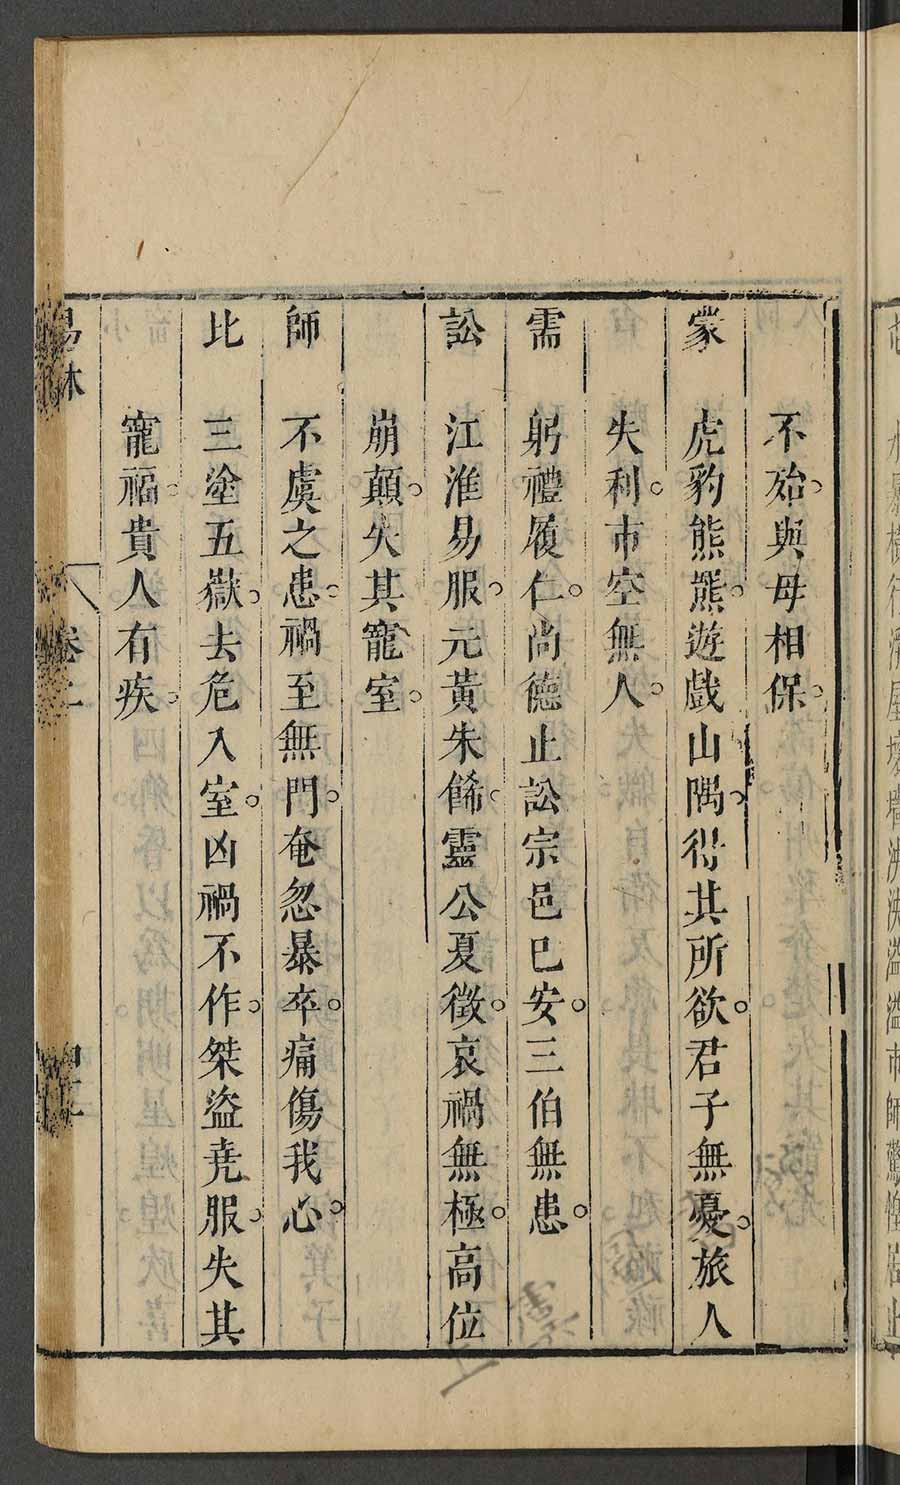 不殆與母相保
蒙 虎豹熊羆遊戲山隅得其所欲君子無憂旅人
失利市空無人
需 躬禮履仁尚德止訟宗邑巳安三伯無患
訟 江淮易服元黃朱飾靈公夏徵哀禍無極高位
崩顛失其寵室
師 不虞之患禍至無門奄忽暴卒痛傷我心
比 三塗五嶽去危入室凶禍不作桀盜堯服失其
寵福貴人有疾
易林
卷二